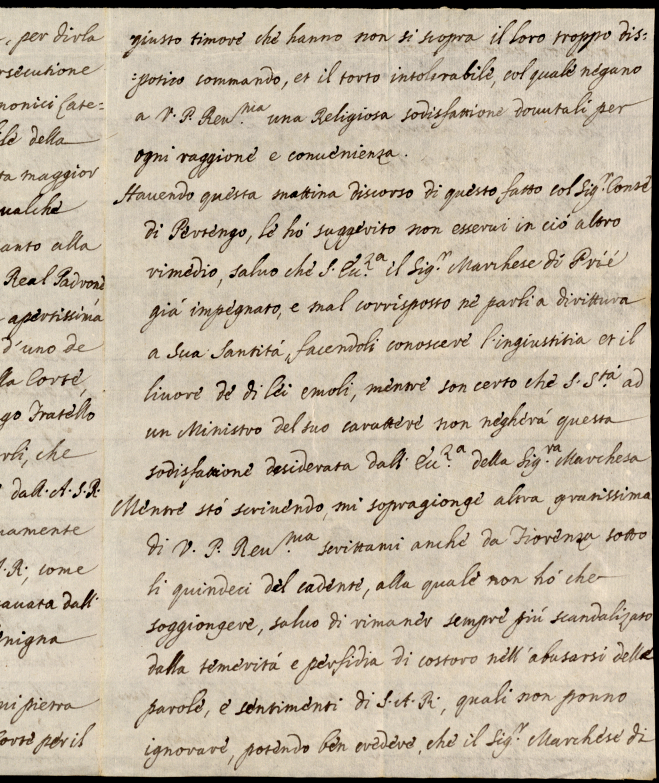 -, per dirla
rsecutione
nonici Cate=
le della
ta maggior
ualche
anto alla
Real Padrone
apertissimá
d'uno de
lla Corte,
go Fratello
rli, che
dall. A. S. R.
uamente
.R; come
cavata dall'
enigna
mi pietra
Corte per il
giusto timore che hanno non si scopra il loro troppo dis:
:potico commando, et il torto intolerabile, col quale negano
a V. P. Reu.ma una Religiosa sodisfattione douutali per
ogni raggione e conuenienza.
Hauendo questa mattina discorso di questo fatto col Sig.r Conte
di Pertengo, le hó suggerito non esserui in ció altro
rimedio, saluo che S. Ecc.za il Sig.r Marchese di Prié
giá impegnato, e mal corrisposto ne parli a dirittura
a Sua Santitá, facendoli conoscere l'ingiustitia et il
liuore de di lei emoli, mentre son certo che S. S.tá ad
un Ministro del suo carattere non negherá questa
sodisfattione desiderata dall' Ecc.za della Sig.ra Marchesa
Mentre stó scriuendo, mi sopragionge altra gratissima
di V. P. Reu.ma scrittami anche da Fiorenza sotto
li quindeci del cadente, alla quale non hó che
soggiongere, saluo di rimaner sempre piú scandalizato
dalla temeritá e perfidia di costoro nell' abusarsi della
parole, e sentimenti di S. A. R., quali non ponno
ignorare, potendo ben credere, che il Sig.r Marchese di